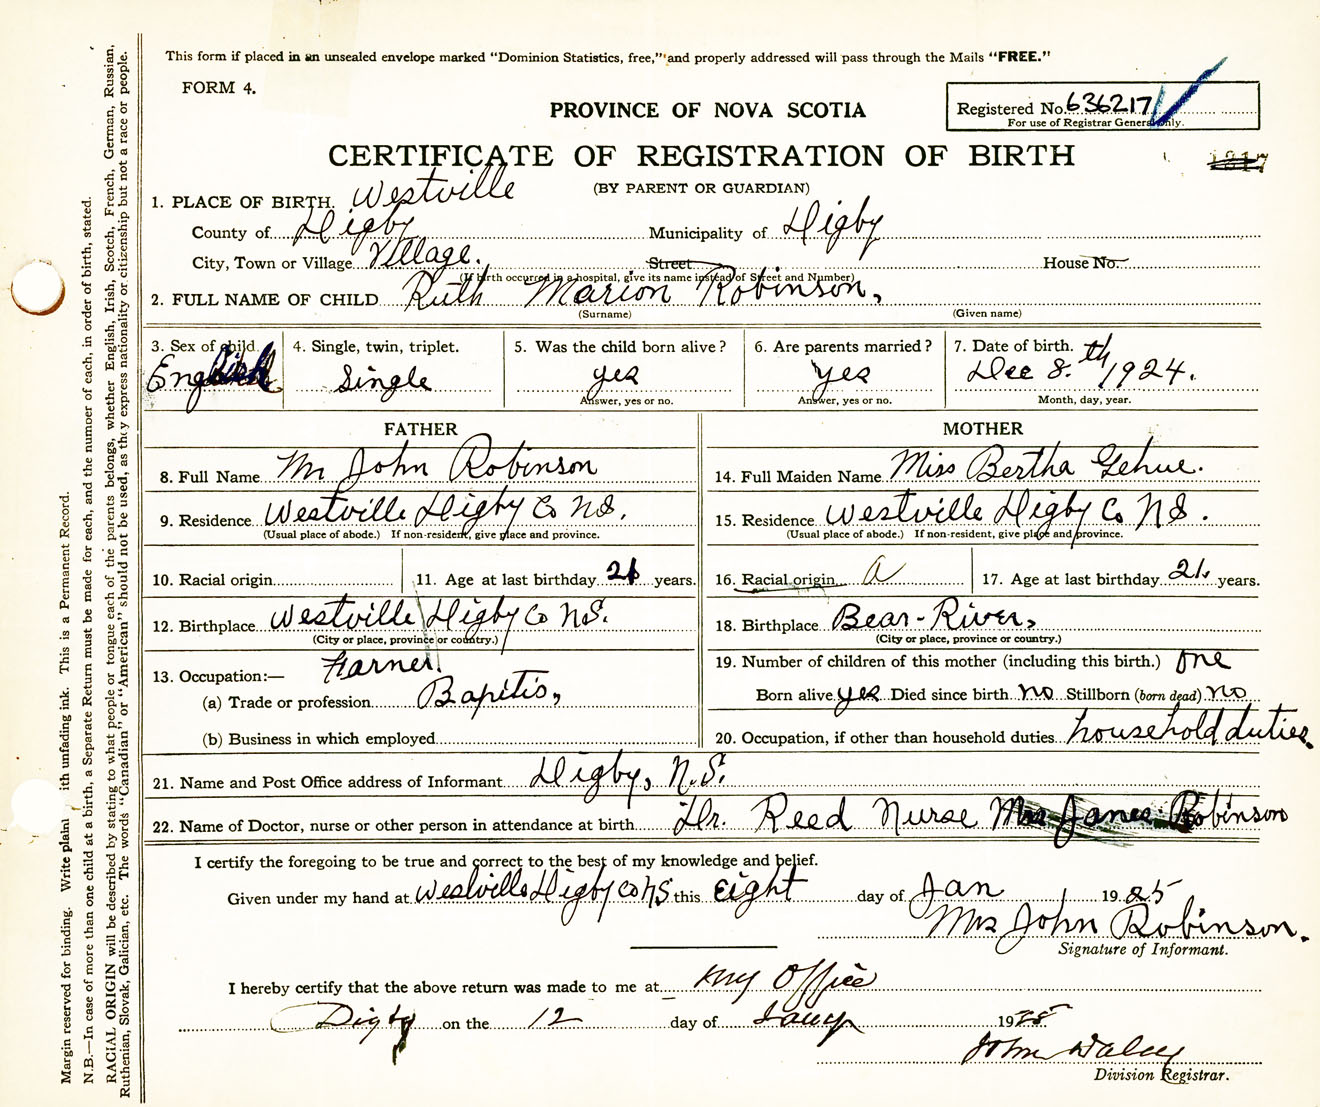 This form if placed in an unsealed envelope marked "Dominion Statistics, free," and properly addressed will pass through the Mails "FREE."
FORM 4.
PROVINCE OF NOVA SCOTIA
Registered No. 636217
For use of Registrar General only.
CERTIFICATE OF REGISTRATION OF BIRTH
1817
(BY PARENT OR GUARDIAN)
1. PLACE OF BIRTH. Westville
County of Digby Municipality of Digby
City, Town or Village Village. Street House No.
(If birth occurred in a hospital, give its name instead of Street and Number)
2. FULL NAME OF CHILD Ruth Marion Robinson,
(Surname) (Given name)
3. Sex of child. 4. Single, twin, triplet. 5. Was the child born alive? 6. Are parents married? 7. Date of birth.
English Single yes yes Dec 8.th 1924.
Answer, yes or no. Answer, yes or no. Month, day, year.
FATHER MOTHER
8. Full Name Mr John Robinson 14. Full Maiden Name Miss Bertha Gehue.
9. Residence Westville Digby Co N.S. 15. Residence Westville Digby Co N S.
(Usual place of abode.) If non-resident, give place and province. (Usual place of abode.) If non-resident, give place and province.
10. Racial origin 11. Age at last birthday 21 years. 16. Racial origin a 17. Age at last birthday 21. years.
12. Birthplace Westville Digby Co N.S. 18. Birthplace Bear-River,
(City or place, province or country.) (City or place, province or country.)
13. Occupation:— Farner. 19. Number of children of this mother (including this birth.) one
(a) Trade or profession Bapitis, Born alive yes Died since birth no Stillborn (born dead) no
(b) Business in which employed 20. Occupation, if other than household duties household duties.
21. Name and Post Office address of Informant Digby, N.S.
22. Name of Doctor, nurse or other person in attendance at birth Dr. Reed Nurse Mrs James Robinson
I certify the foregoing to be true and correct to the best of my knowledge and belief.
Given under my hand at Westville Digby Co NS this eight day of Jan 1925
Mrs John Robinson.
Signature of Informant.
I hereby certify that the above return was made to me at my Office
Digby on the 12 day of Jany 1925
John Daley
Division Registrar.
Margin reserved for binding. Write plainl ith unfading ink. This is a Permanent Record.
N.B.—In case of more than one child at a birth, a Separate Return must be made for each, and the number of each, in order of birth, stated.
RACIAL ORIGIN will be described by stating to what people or tongue each of the parents belongs, whether English, Irish, Scotch, French, German, Russian,
Ruthenian, Slovak, Galician, etc. The words "Canadian" or "American" should not be used, as they express nationality or citizenship but not a race or people.